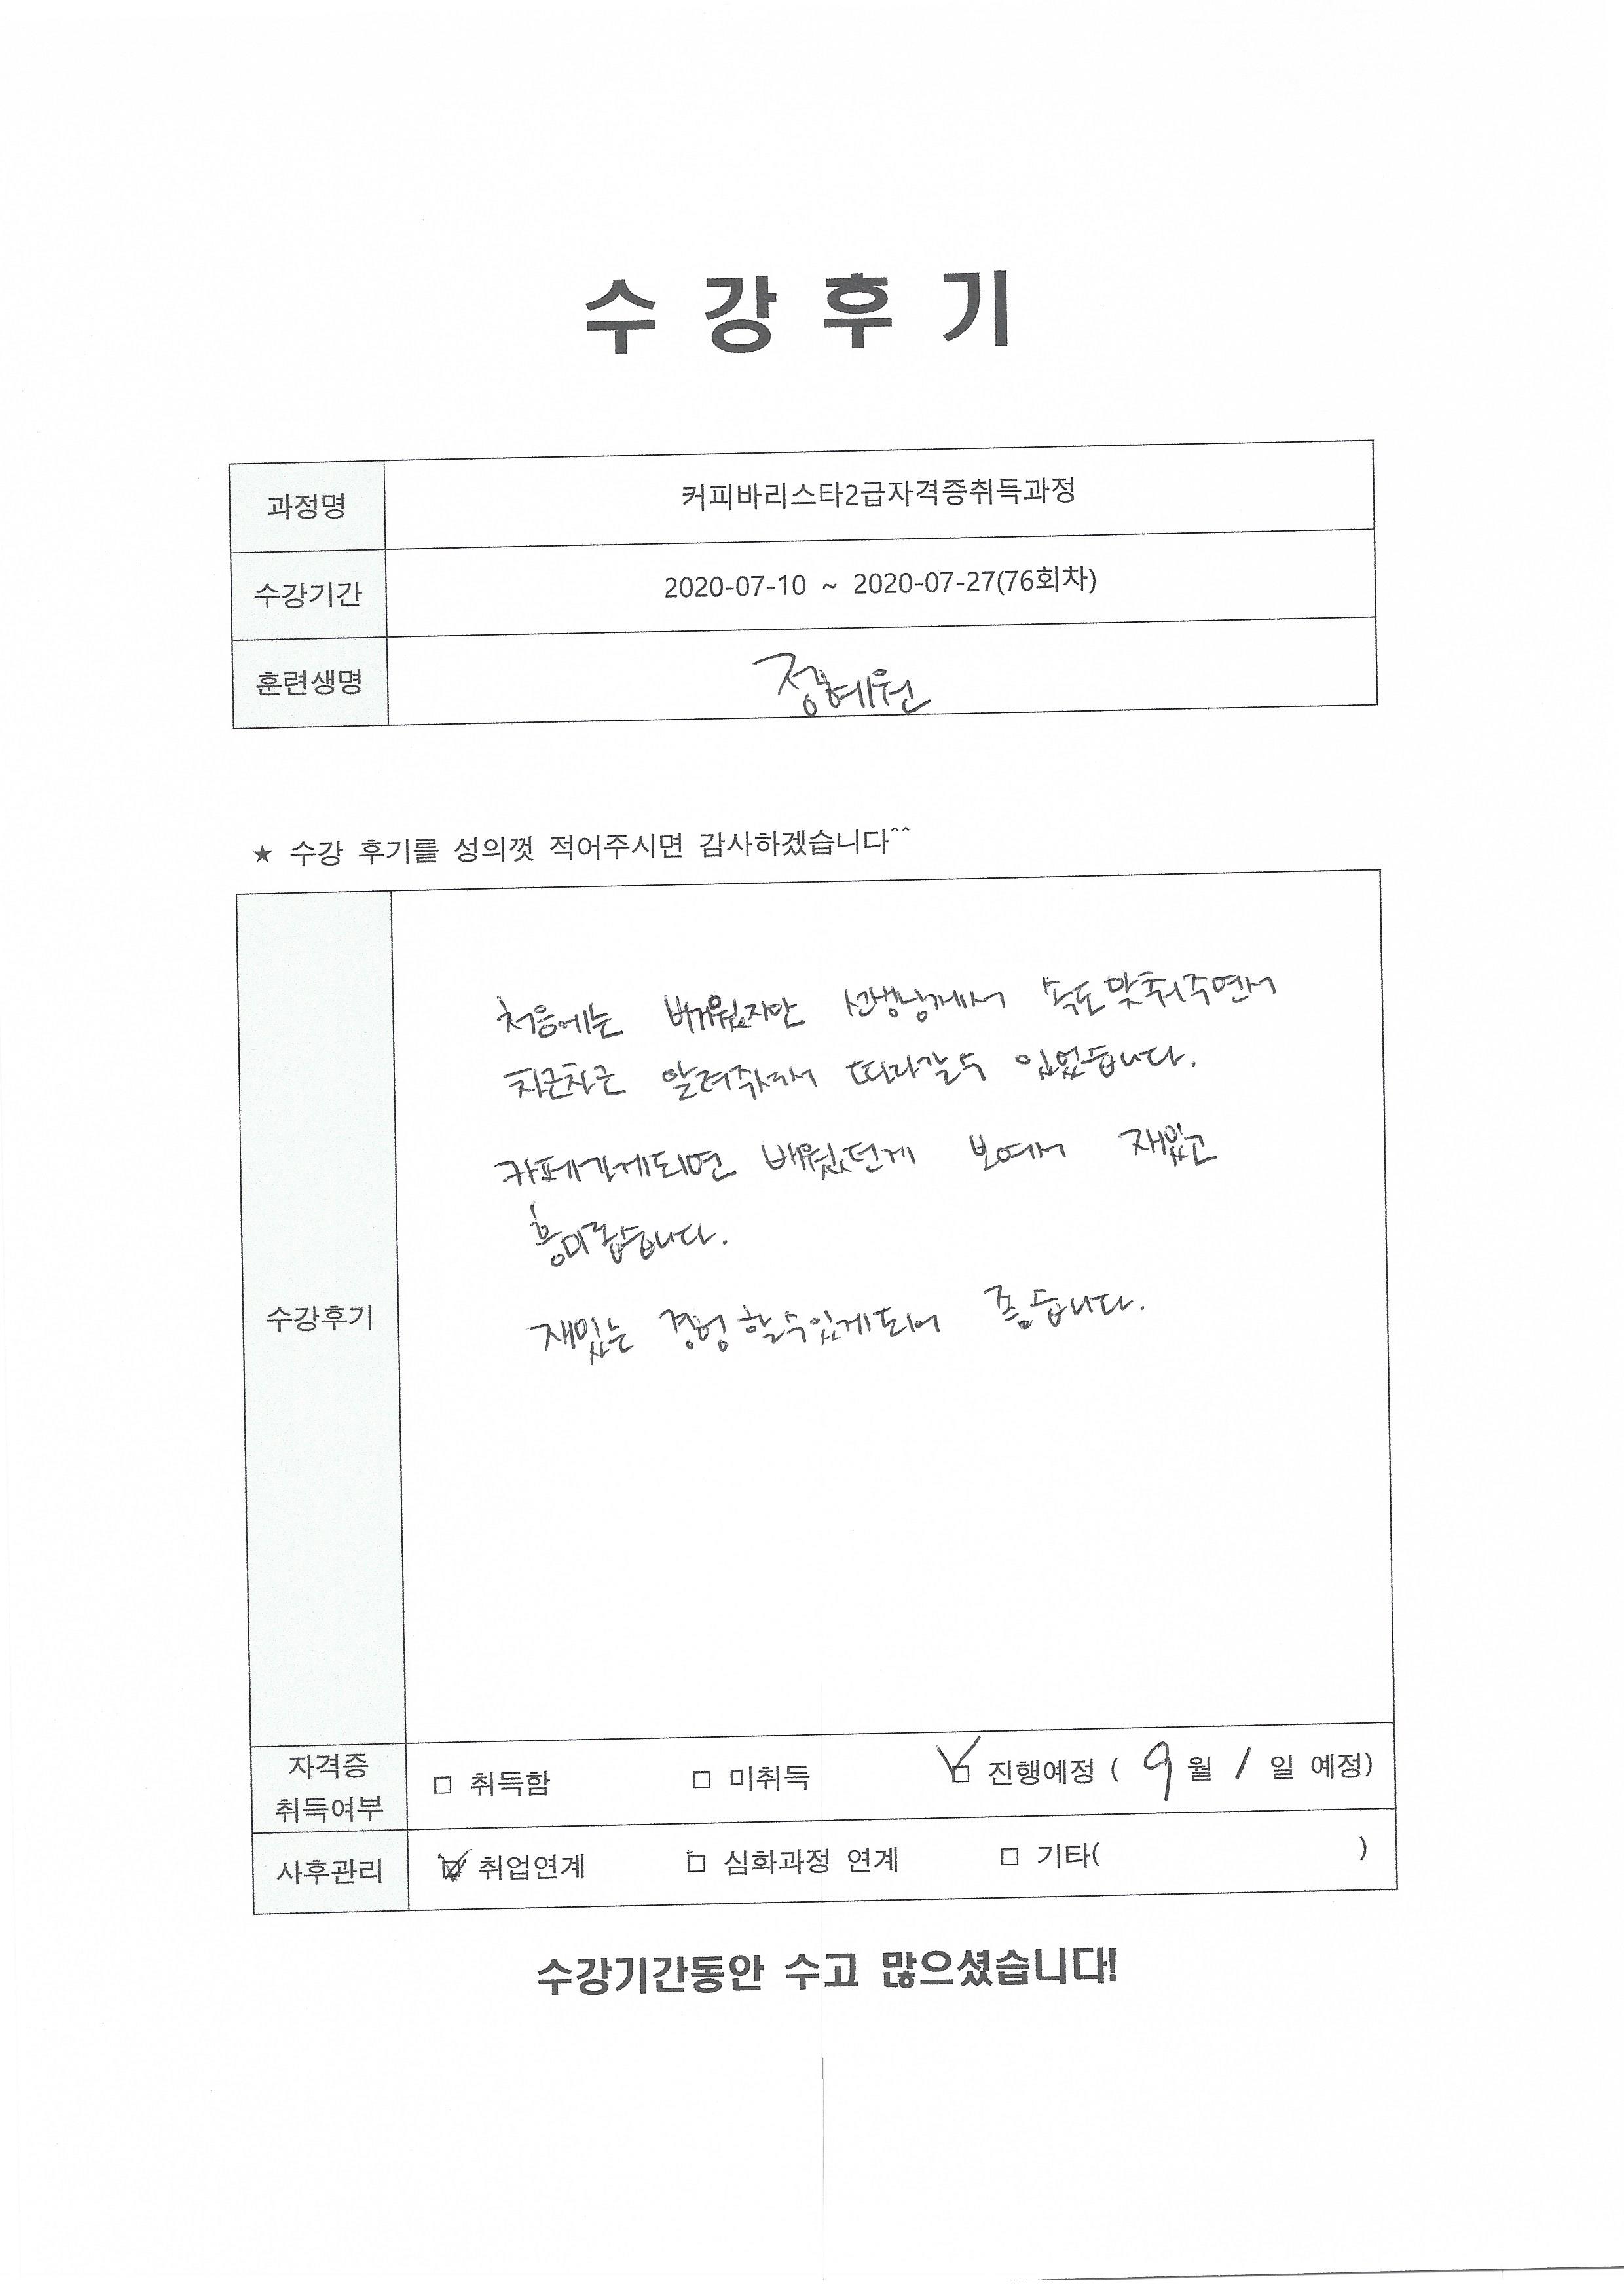 수 강 후 기
과정명 커피바리스타2급자격증취득과정
수강기간 2020-07-10 ~ 2020-07-27(76회차)
훈련생명 정혜원
★ 수강 후기를 성의껏 적어주시면 감사하겠습니다^^
처음에는 버거웠지만 선생님께서 속도맞춰주면서
차근차근 알려주셔서 따라갈수 있었습니다.
카페가게되면 배웠던게 보여서 재밌고
수강후기
흥미롭습니다.
재밌는 경험할수있게되어 좋습니다.
자격증
취득여부
□ 취득함 □ 미취득 ☑ 진행예정 ( 9 월 1 일 예정)
사후관리 ☑ 취업연계 □ 심화과정 연계 □ 기타( )
수강기간동안 수고 많으셨습니다!